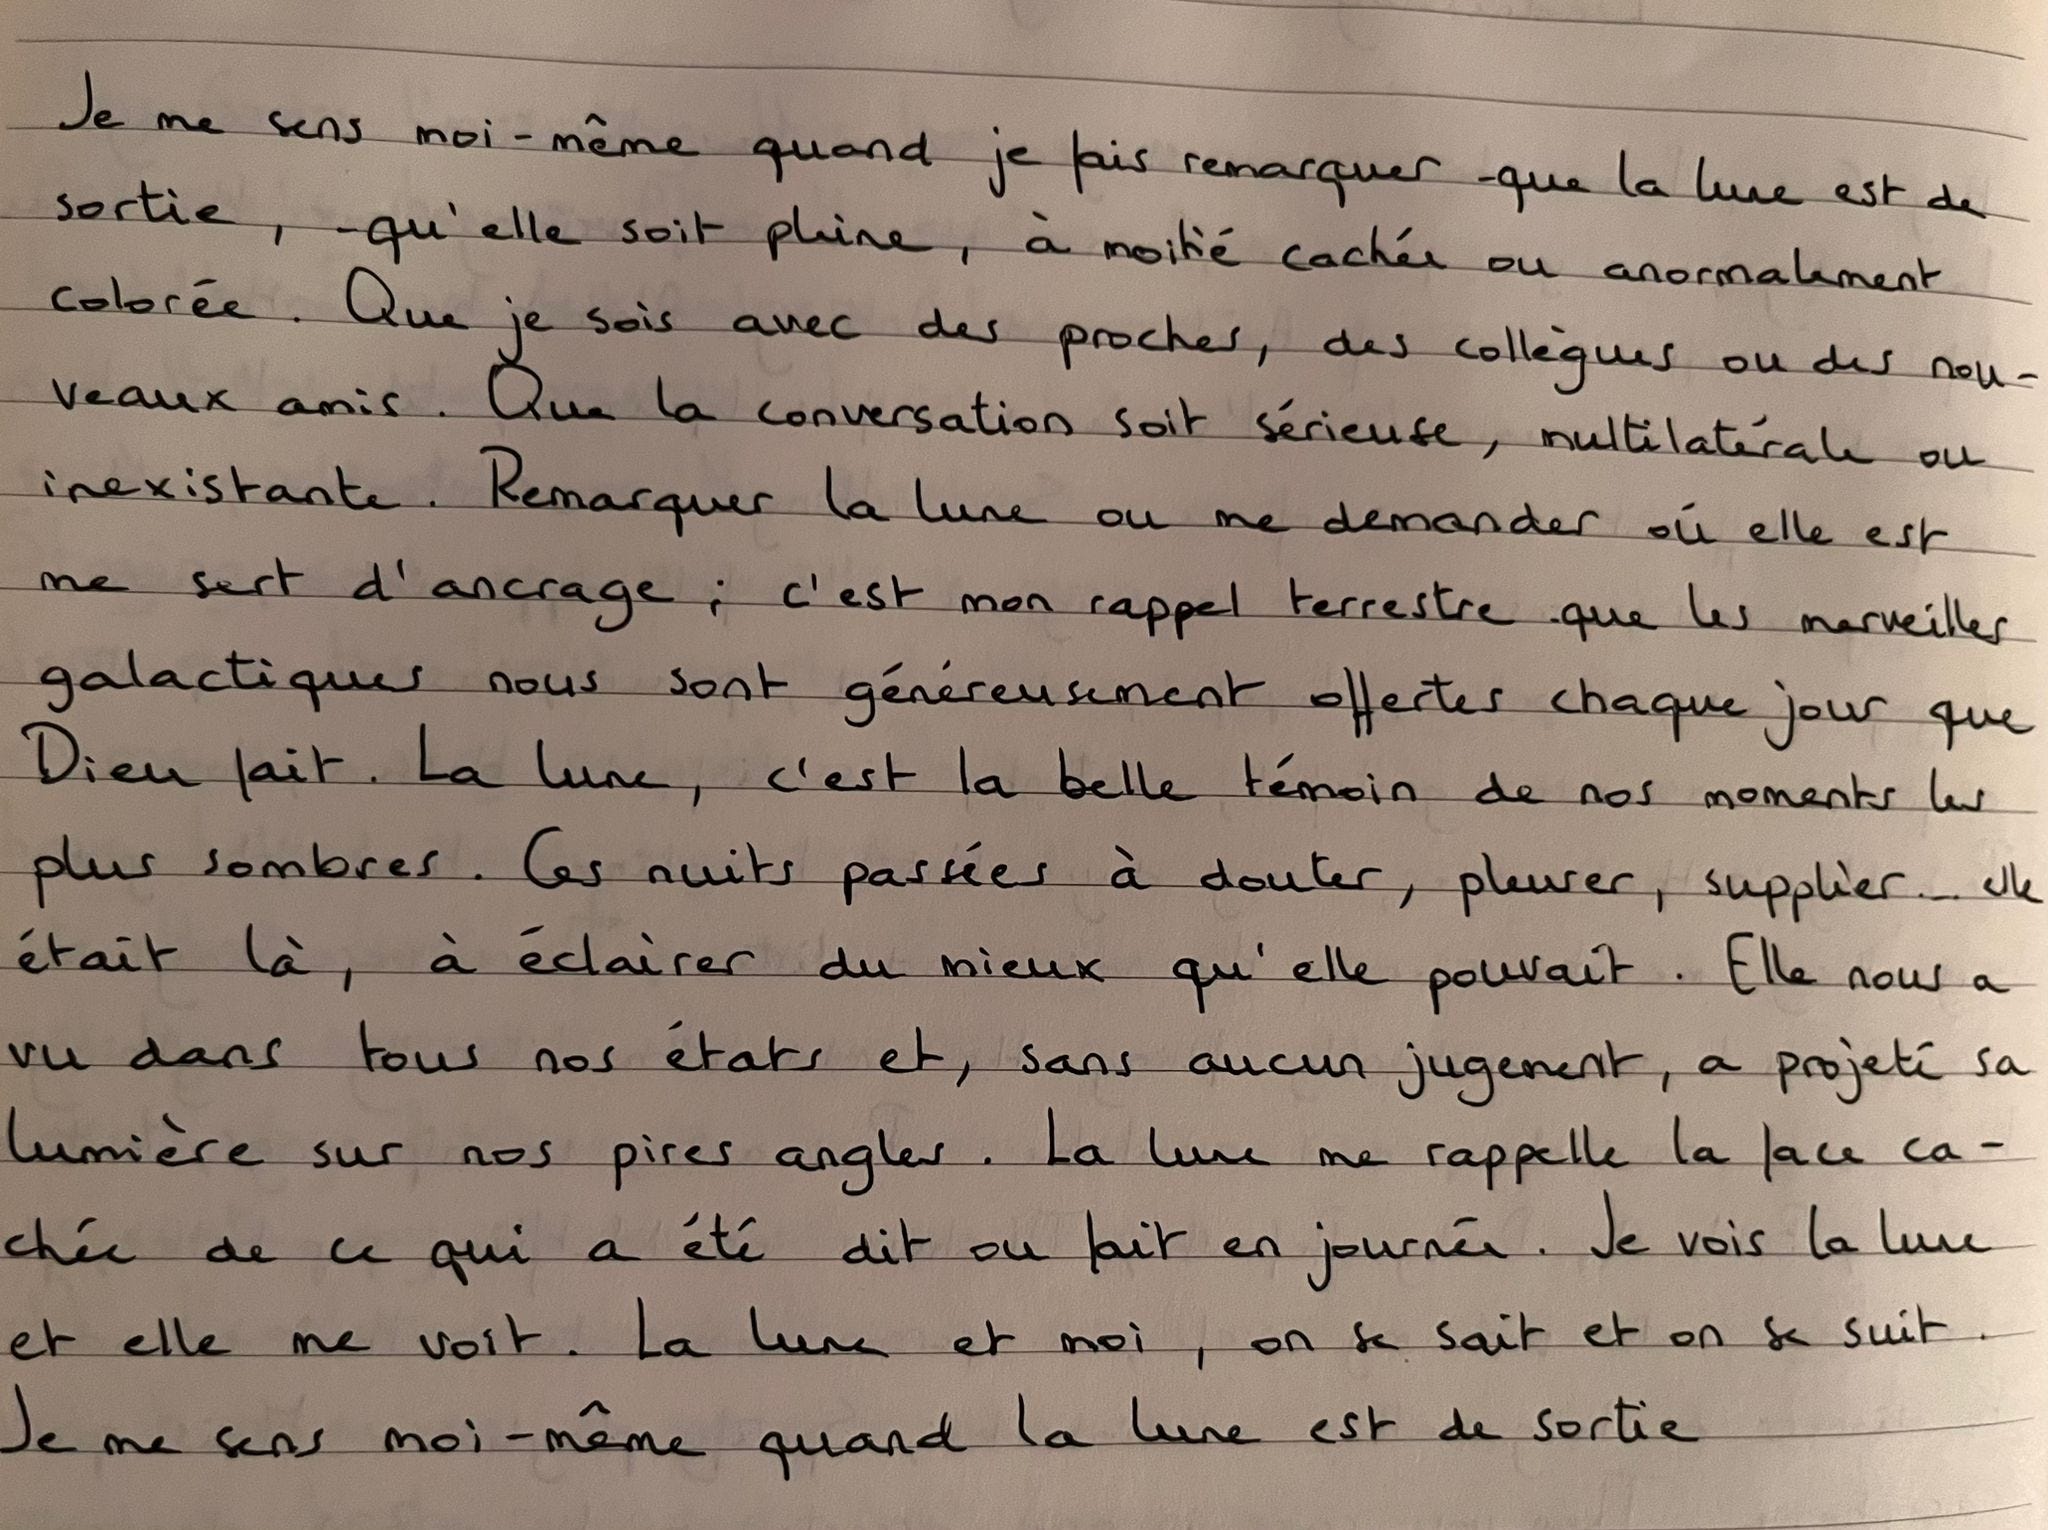 Je me sens moi-même quand je fais remarquer que la lune est de
sortie, qu'elle soit pleine, à moitié cachée ou anormalement
colorée. Que je sois avec des proches, des collègues ou des nou-
veaux amis. Que la conversation soit sérieuse, multilatérale ou
inexistante. Remarquer la lune ou me demander où elle est
me sert d'ancrage ; c'est mon rappel terrestre que les merveilles
galactiques nous sont généreusement offertes chaque jour que
Dieu fait. La lune, c'est la belle témoin de nos moments les
plus sombres. Ces nuits passées à douter, pleurer, supplier... elle
était là, à éclairer du mieux qu'elle pouvait. Elle nous a
vu dans tous nos états et, sans aucun jugement, a projeté sa
lumière sur nos pires angles. La lune me rappelle la face ca-
chée de ce qui a été dit ou fait en journée. Je vois la lune
et elle me voit. La lune et moi, on se sait et on se suit.
Je me sens moi-même quand la lune est de sortie